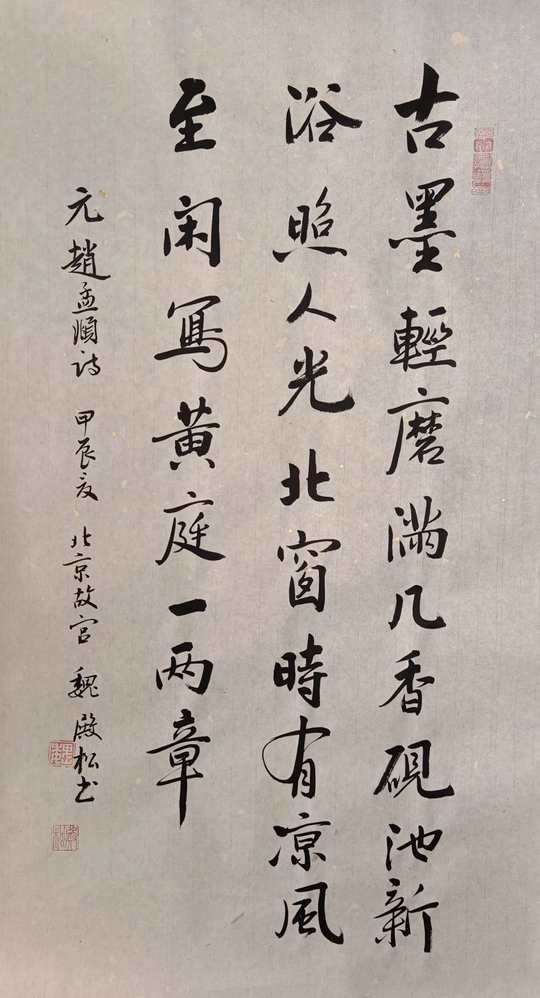 古墨輕磨滿几香硯池新
浴照人光北窗時有凉風
至闲寫黄庭一两章
元趙孟頫诗 甲辰夏 北京故宫 魏殿松书